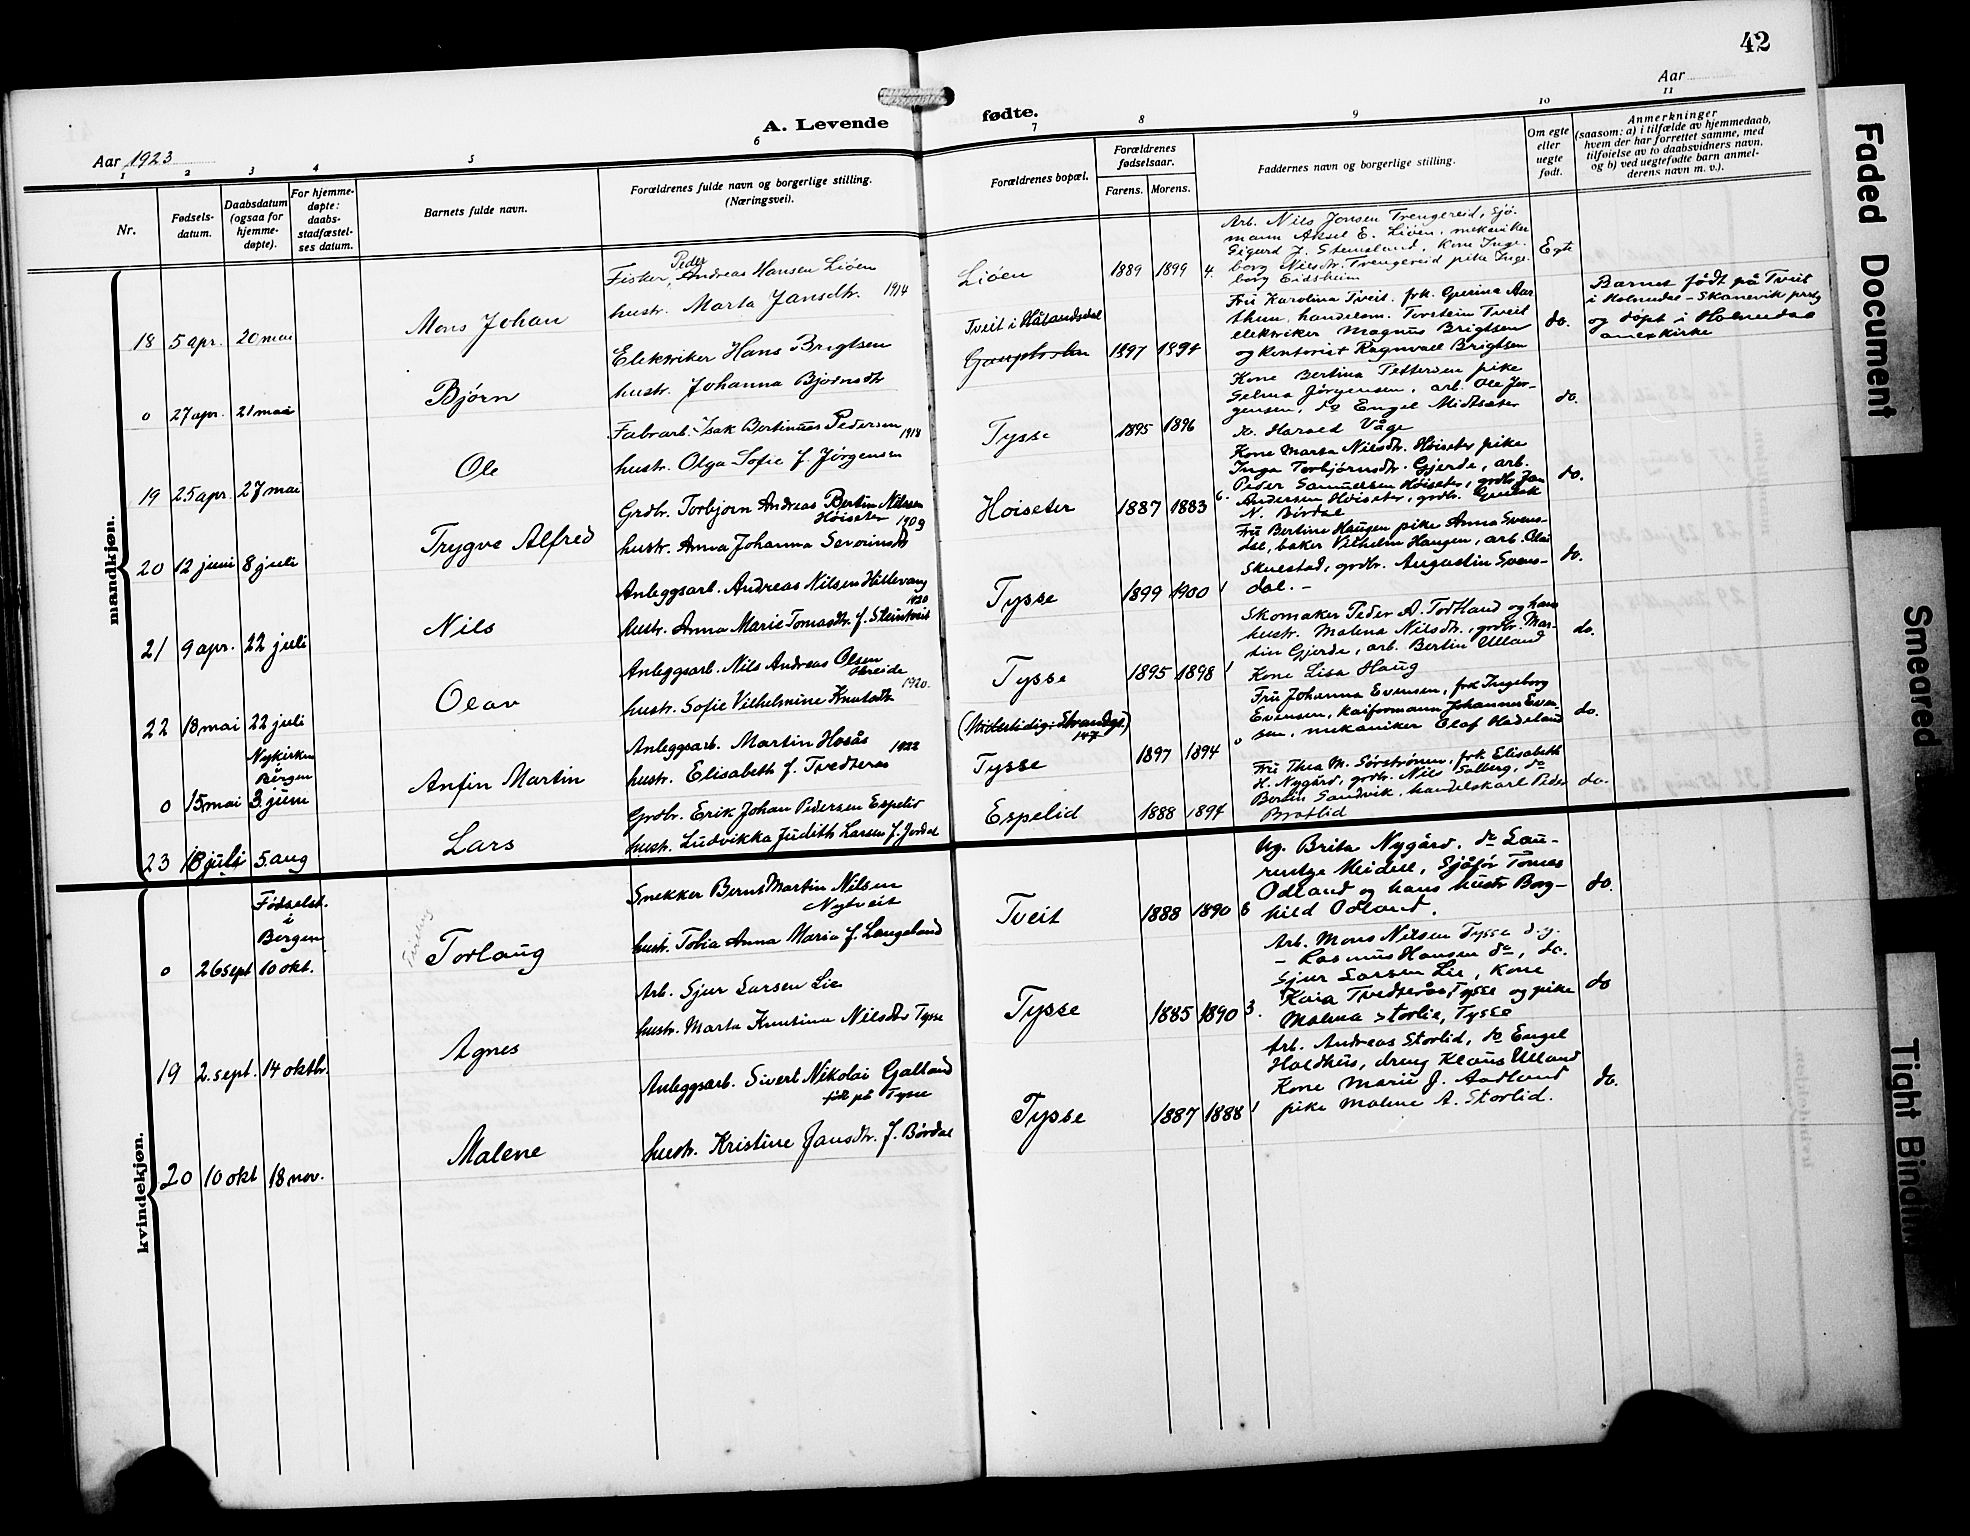 42
Aar
A. Levende fødte.
Aar 1923
1 2 3 4 5 6 7 8 9 10 11
Nr.
Fødsels-
datum.
Daabsdatum
(ogsaa for
hjemme-
døpte).
For hjemme-
døpte:
daabs-
stadfæstel-
ses datum.
Barnets fulde navn.
Forældrenes fulde navn og borgerlige stilling.
(Næringsvei).
Forældrenes bopæl.
Forældrenes
fødselsaar.
Farens. Morens.
Faddernes navn og borgerlige stilling.
Om egte
eller
uegte
født.
Anmerkninger
(saasom: a) i tilfælde av hjemmedaab,
hvem der har forrettet samme, med
tilføielse av to daabsvidners navn,
og b) ved uegtefødte barn anmel-
derens navn m. v.).
mandkjøn.
18 5 apr. 20 mai
Mons Johan
Peder
Fisker, Andreas Hansen Liøen
hustr. Marta Jansdtr. 1914
Liøen
1889 1899 4.
Arb. Nils Jonsen Trengereid, sjø-
mann Aksel E. Liøen, mekaniker
Sigurd J. Stemsland, kone Inge-
borg Nilsdtr. Trengereid pike Inge-
borg Eidsheim
Egte
0 27 apr. 21 mai
Bjørn
Elektriker Hans Brigtsen
hustr. Johanna Bjørnsdtr
Tveit i Hålandsdal
1897 1894
Fru Karolina Tveit, frk. Gurina Aar
thun, handelsm. Torstein Tveit
elektriker Magnus Brigtsen
og kontorist Ragnvall Brigtsen
do.
Barnet født på Tveit
i Holmedal - Skånevik prstg
og døpt i Holmedal
anekskirke
19 25 apr. 27 mai
Ole
Fabrarb. Isak Bertinus Pedersen
1918
hustr. Olga Sofie f. Jørgensen
Tysse
1895 1896
Kone Bertina Pettersen pike
Selma Jørgensen, arb. Ole Jør-
gensen, do Engel Midtsæter
do. Harald Våge
do.
20 12 juni 8 juli
Trygve Alfred
Grdbr. Torbjørn Andreas Bertin Nilsen
Høiseter
1909
hustr. Anna Johanna Severinsdtr
Høiseter
1887 1883 6.
Kone Marta Nilsdtr. Høiseter pike
Inga Torbjørnsdtr. Gjerde, arb.
Peder Samuelsen Høiseter, grdbr Jan
Andersen Høiseter, grdbr.
N. Børdal
do.
21 9 apr. 22 juli
Nils
Anleggsarb. Andreas Nilsen Hillevang
1920
hustr. Anna Marie Tomasdtr. f. Steintveit
Tysse
1899 1900 1
Fru Bertine Haugen pike Anna Svens-
dal, baker Vilhelm Haugen, arb. Olai
Skuestad, grdbr. Augustin Svens-
dal. -
do.
22 18 mai 22 juli
Olav
Anleggsarb. Nils Andreas Olsen
Hereide
1920.
hustr. Sofie Vilhelmine Knutsdtr
Tysse
1895 1898 1
Skomaker Peder A. Todland og hans
hustr. Malena Nilsdtr., grdbr. Mar-
tin Gjerde, arb. Bertin Ulland
Kone Lisa Haug
do.
0 15 mai
Nykirken
i
Bergen
3. juni
Anfin Martin
Anleggsarb. Martin Hosås
1922
hustr. Elisabeth f. Tvedterås
(Midlertidig: Strandgt.
147)
Tysse
1897 1894 0
Fru Johanna Evensen, frk Ingeborg
Evensen, kaiformann Johannes Even-
sen, mekaniker Olaf Hadeland
do.
23 18 juli 5 aug
Lars
Grdbr. Erik Johan Pedersen Espelid
hustr. Ludvikka Judith Larsen f. Jordal
Espelid
1888 1894
Fru Thea M. Sørstrønen, frk Elisabeth
H. Nygård, grdbr. Nils Solberg, do
Berlin Sandvik, handelskarl Peder
Bratlid
do.
kvindekjøn.
0 26 sept
Fødselst.
i
Bergen
10 okt.
Torlaug
Snekker Bernt Martin Nilsen
Nytveit
hustr. Tobia Anna Maria f. Langeland
Tveit
1888 1890 6
Ug. Brita Nygård, do Lau-
rentze Meidell, Sjåfør Tomas
Odland og hans hustr Borg-
hild Odland.
do.
19 2. sept. 14 oktbr.
Agnes
Arb. Sjur Larsen Lie
hustr. Marta Knutina Nilsdtr Tysse
Tysse
1885 1890 3.
Arb. Mons Nilsen Tysse d.y.
- Rasmus Hansen do, do.
Sjur Larsen Lie, kone
Kaia Tvedterås, Tysse og pike
Malena Storlie, Tysse
do
20 10 okt 18 nov.
Malene
Anleggsarb. Sivert Nikolai Galland
født på Tysse
hustr. Kristine Jansdtr. f. Børdal
Tysse
1887 1888 1
Arb. Andreas Storlid, do Engel
Holdhus, dreng Klaus Ulland
Kone Marie J. Aadland
pike Malene A. Storlid.
do.
Faded Document
Smeared
Tight Bindin